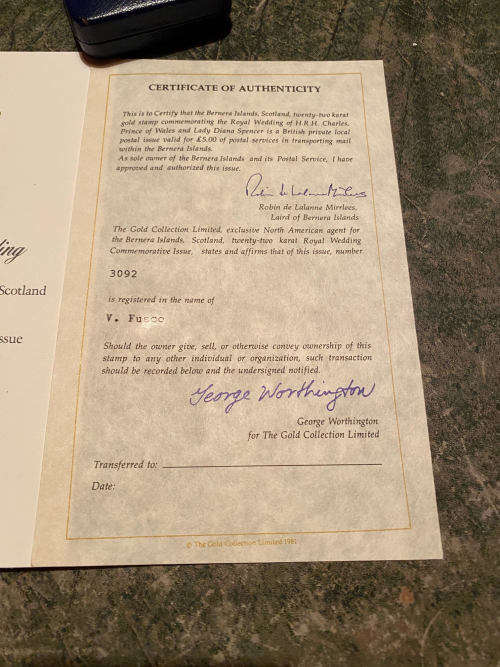 ing
Scotland
ssue
CERTIFICATE OF AUTHENTICITY
This is to Certify that the Bernera Islands, Scotland, twenty-two karat
gold stamp commemorating the Royal Wedding of H.R.H. Charles,
Prince of Wales and Lady Diana Spencer is a British private local
postal issue valid for £5.00 of postal services in transporting mail
within the Bernera Islands.
As sole owner of the Bernera Islands and its Postal Service, I have
approved and authorized this issue.
Robin de Lalanne Mirrlees,
Laird of Bernera Islands
The Gold Collection Limited, exclusive North American agent for
the Bernera Islands, Scotland, twenty-two karat Royal Wedding
Commemorative Issue, states and affirms that of this issue, number
3092
is registered in the name of
V. Fusco
Should the owner give, sell, or otherwise convey ownership of this
stamp to any other individual or organization, such transaction
should be recorded below and the undersigned notified.
George Worthington
George Worthington
for The Gold Collection Limited
Transferred to:
Date:
© The Gold Collection Limited 1981